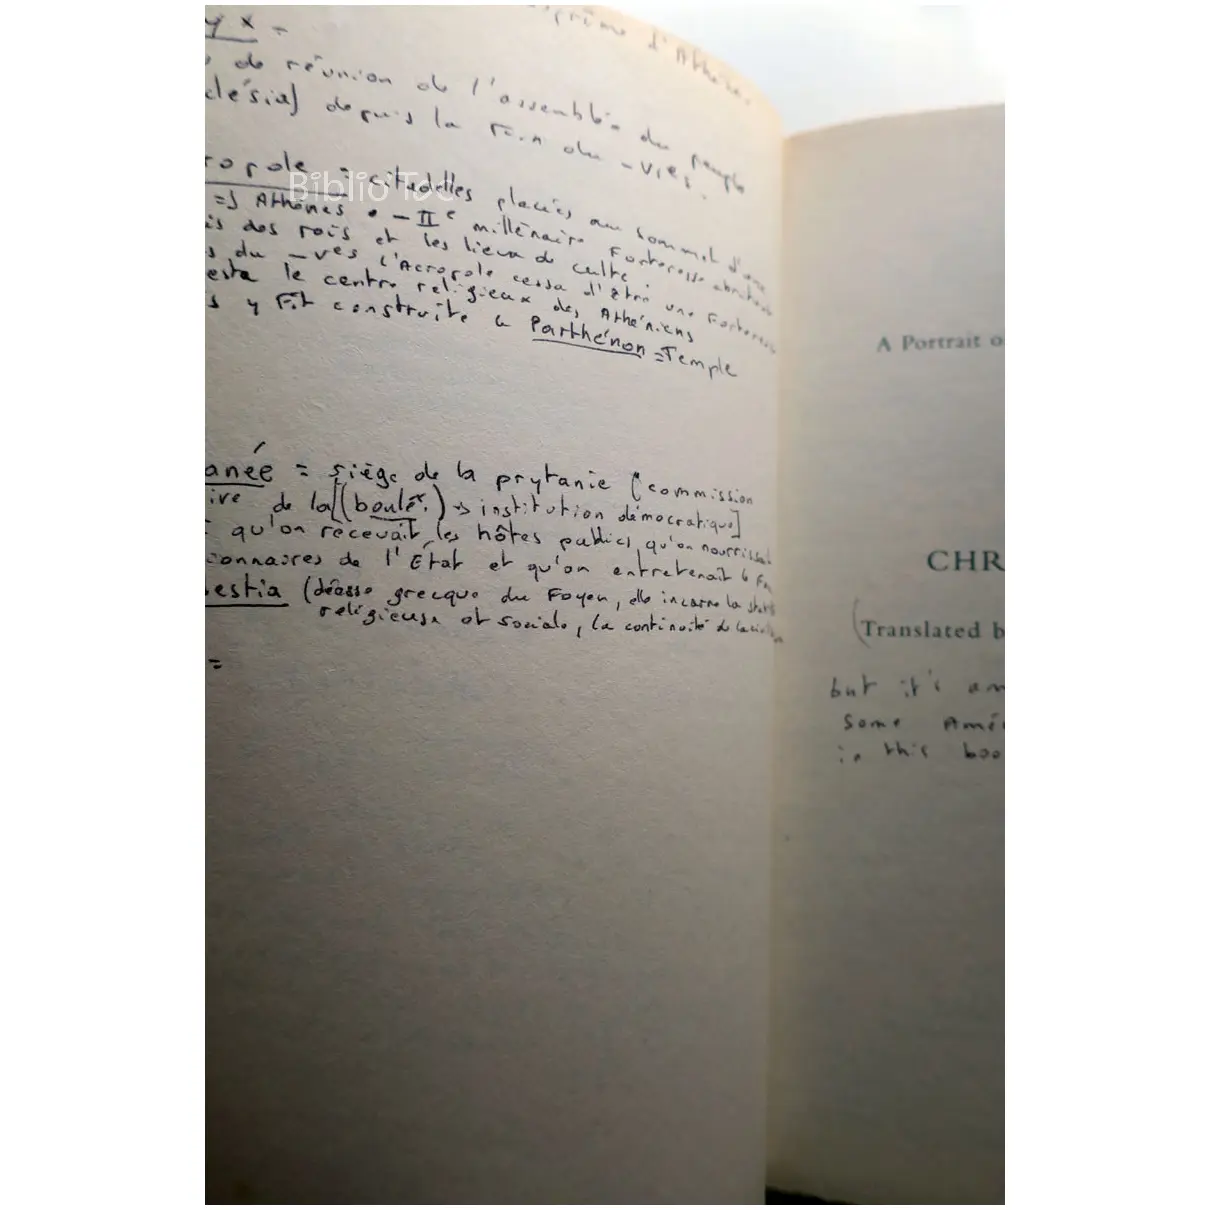 d'Athènes.
yx =
de réunion de l'assemblée du peuple
clésia] depuis la fin du -VIes.
ropole = citadelles placées au sommet d'une
=> Athènes • -IIe millénaire Forteresse abritait
is des rois et les lieux de culte.
s du -Ves l'Acropole cessa d'être une Forteresse
esta le centre religieux des Athéniens
s y fit construire le Parthénon = Temple
anée = siège de la prytanie (commission
ive de la [(boulê.) -> institution démocratique]
qu'on recevait les hôtes publics, qu'on nourrissait
ionnaires de l'État et qu'on entretenait le
estia (déesse grecque du Foyer, elle incarne la
religieuse et sociale, la continuité de la
=
Biblio Toc
A Portrait o
CHR
(Translated b
but it's an
some Amé
in this boo